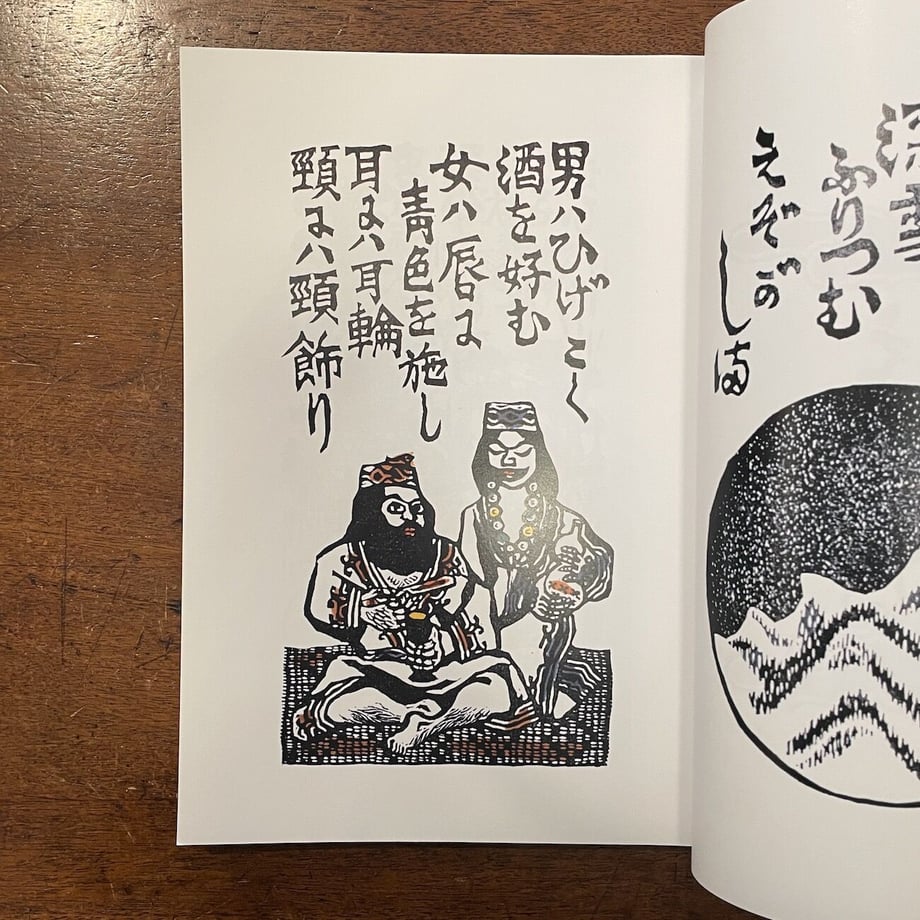 深雪
ふりつむ
えぞが
しま
男ハひげこく
酒を好む
女ハ唇に
靑色を施し
耳にハ耳輪
頸にハ頸飾り